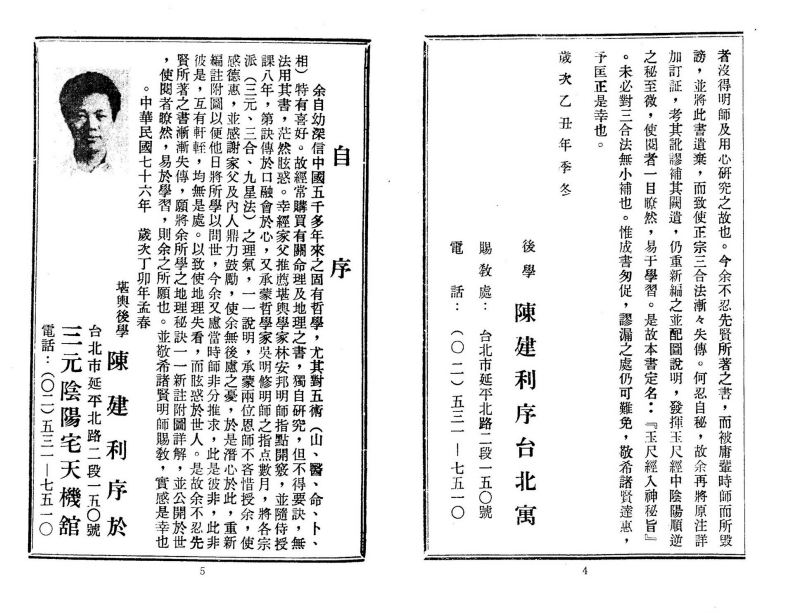 者沒得明師及用心研究之故也。今余不忍先賢所著之書，而被庸輩時師而所毀
謗，並將此書遺棄，而致使正宗三合法漸々失傳。何忍自秘，故余再將原注詳
加訂証，考其訛謬補其闕遺，仍重新編之並配圖說明，發揮玉尺經中陰陽順逆
之秘至微，使閱者一目瞭然，易于學習。是故本書定名：『玉尺經入神秘旨』
。未必對三合法無小補也。惟成書匆促，謬漏之處仍可難免，敬希諸賢達惠，
予匡正是幸也。
歲次乙丑年季冬
後學 陳建利序台北寓
賜教處： 台北市延平北路二段一五〇號
電話：（〇二）五三一—七五一〇
4
自序
余自幼深信中國五千多年來之固有哲學，尤其對五術（山、醫、命、卜、
相）特有喜好。故經常購買有關命理及地理之書，獨自研究，但不得要訣，無
法用其書，茫然眩惑。幸經家父推薦堪輿學家林安邦明師指點開竅，並隨侍授
課八年，第訣傳於口融會於心，又承蒙哲學家吳明修明師之指点數月，將各宗
派（三元、三合、九星法）之理氣，一一說明，承蒙兩位恩師不吝惜授余，使
感德惠，並感謝家父及內人鼎力鼓勵，使余無後慮之憂，於是潛心於此，重新
編註附圖以便他日將所學以問世，今余又慮當時師非分推求，此是彼非，此非
彼是，互有軒輊，均無是處。以致使地理失看，而眩惑於世人。是故余不忍先
賢所著之書漸漸失傳，願將余所學之地理秘訣一一新註附圖詳解，並公開於世
，使閱者瞭然，易於學習，則余之所願也。並敬希諸賢明師賜敎，實感是幸也
。中華民國七十六年 歲次丁卯年孟春
堪輿後學 陳建利序於
台北市延平北路二段一五〇號
三元陰陽宅天機舘
電話：（〇二）五三一—七五一〇
5